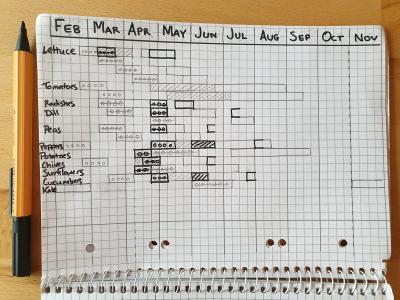 FEB MAR APR MAY JUN JUL AUG SEP OCT NOV
Lettuce
Tomatoes
Radishes
Dill
Peas
Peppers
Potatoes
Chives
Sunflowers
Cucumbers
Kale